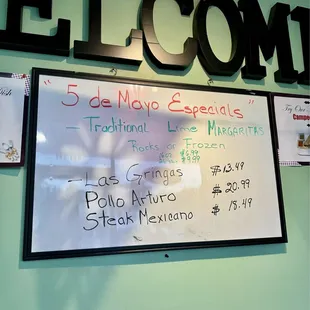 WELCOME
"5 de Mayo Especials"
- Traditional Lime MARGARITAS
Rocks or Frozen
$9.99
- Las Gringas $13.49
Pollo Arturo $20.99
Steak Mexicano $18.49
Try Our